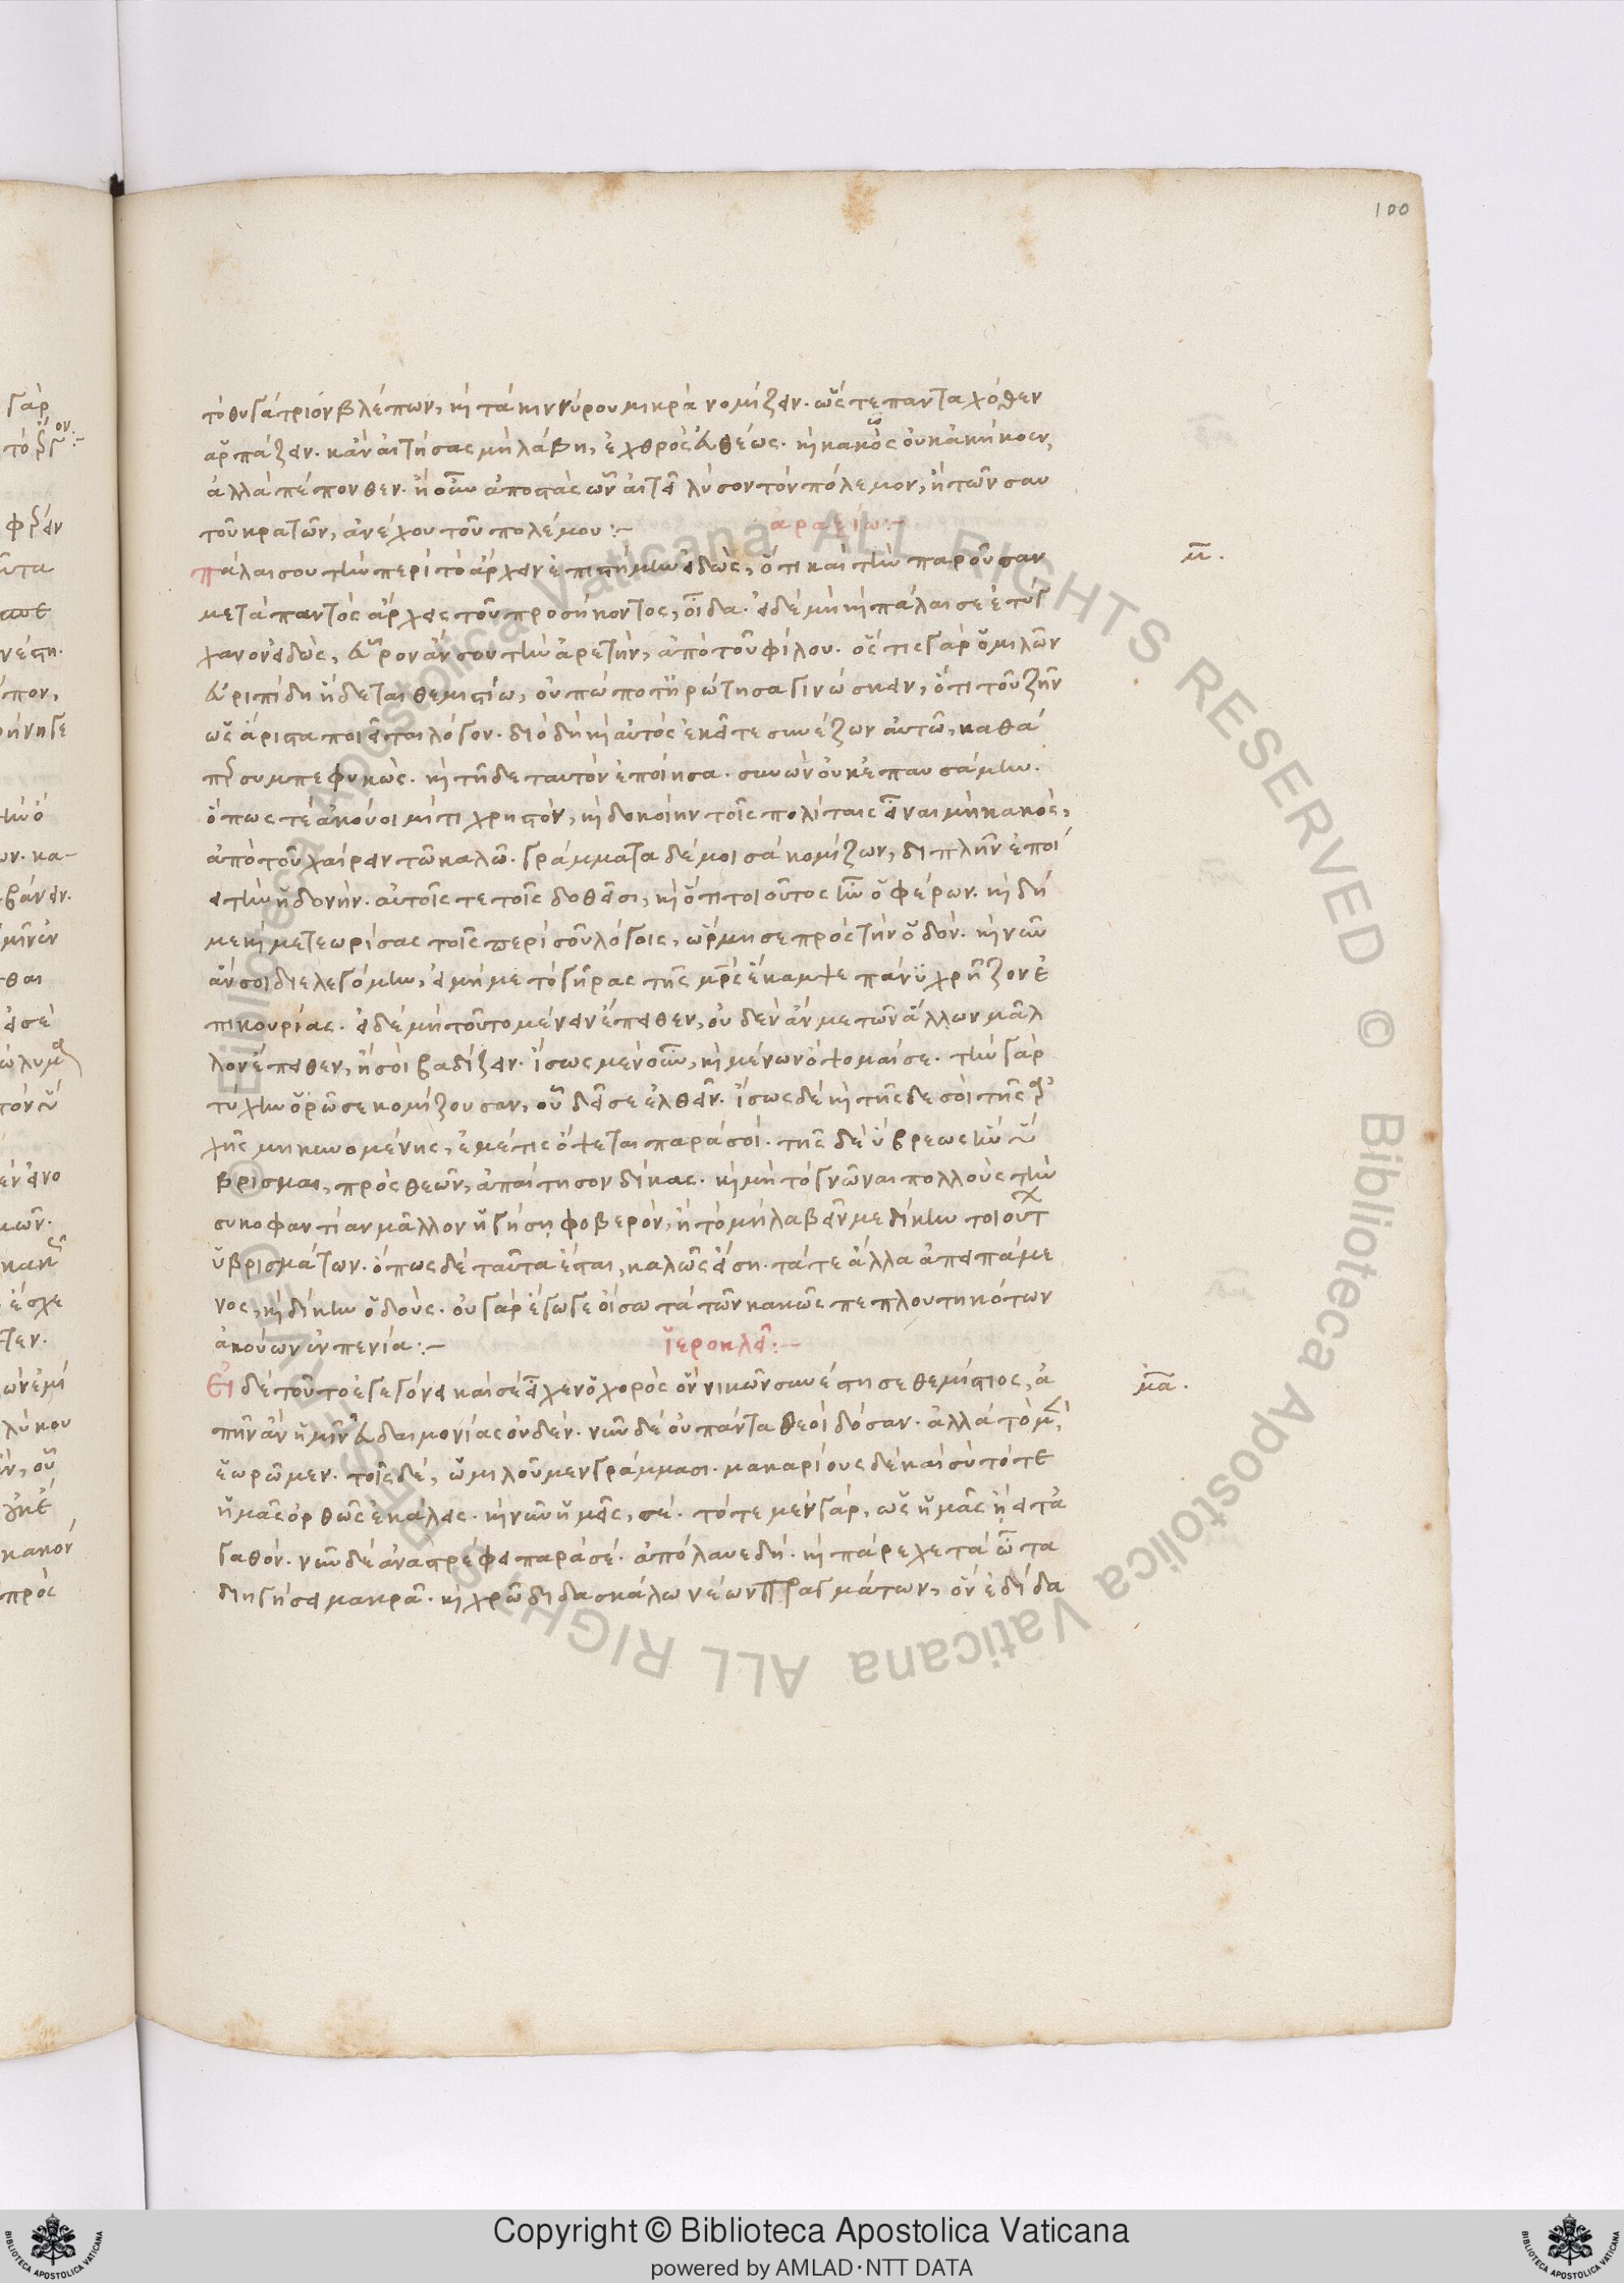 100
τὸ θυγάτριον βλέπων, κὶ τὰ κιννύρου μικρὰ νομίζειν. ὥστε πανταχόθεν
ἁρπάζειν. κἂν αἰτήσας μὴ λάβη, ἐχθρὸς εὐθέως. κὶ κακῶς οὐκ ἀκήκοεν,
ἀλλὰ πέπονθεν. ἢ οὖν ἀποστὰς ὧν αἰτεῖ λῦσον τὸν πόλεμον, ἢ τῶν σαυ
τοῦ κρατῶν, ἀνέχου τοῦ πολέμου:-
ἀραξίω:-
μ.
Πάλαι σου τὴν περὶ τὸ ἄρχειν ἐπιστήμην εἰδὼς, ὅτι καὶ τὴν παροῦσαν
μετὰ παντὸς ἄρχεις τοῦ προσήκοντος, οἶδα. εἰ δὲ μὴ κὶ πάλαι σε ἐτύγ
χανον εἰδὼς, εὗρον ἄν σου τὴν ἀρετὴν, ἀπὸ τοῦ φίλου. ὅστις γὰρ ὁμιλῶν
εὐριπίδη ἥδεται θεμιστίω, οὐπώποτ' ἠρώτησα γινώσκειν, ὅτι τοῦ ζῆν
ὡς ἄριστα ποιεῖται λόγον. διὸ δὴ κὶ αὐτὸς ἐκεῖ τε συνέζων αὐτῶ, καθά
περ συμπεφυκὼς. κὶ τῆδε ταυτὸν ἐποίησα. συνὼν οὐκ ἐπαυσάμην.
ὅπως τὲ ἀκούοιμί τι χρηστὸν, κὶ δοκοίην τοῖς πολίταις εἶναι μὴ κακὸς,
ἀπὸ τοῦ χαίρειν τῶ καλῶ. γράμματα δέ μοι σὰ κομίζων, διπλῆν ἐποί
ει τὴν ἡδονήν. αὐτοῖς τε τοῖς δοθεῖσι, κὶ ὅτι τοιοῦτος ἦν ὁ φέρων. κὶ δή
με κὶ μετεωρίσας τοῖς περὶ σοῦ λόγοις, ὥρμησε πρὸς τὴν ὁδόν. κὶ νῦν
ἄν σοι διελεγόμην, εἰ μή με τὸ γῆρας τῆς μρς ἔκαμψε πάνυ χρῆζον ἐ
πικουρίας. εἰ δὲ μὴ τοῦτο μένειν ἔπειθεν, οὐδὲν ἄν με τῶν ἄλλων μᾶλ
λον ἔπειθεν, ἢ σοὶ βαδίζειν. ἴσως μὲν οὖν, κὶ μένων ὄψομαί σε. τὴν γὰρ
τύχην ὁρῶ σε κομίζουσαν, οὗ δεῖ σε ἐλθεῖν. ἴσως δὲ κὶ τῆσδε σοὶ τῆς ἀρ
χῆς μηκυνομένης, ἐμέ τις ὄψεται παρὰ σοί. τῆς δὲ ὕβρεως ἣν ὕ
βρισμαι, πρὸς θεῶν, ἀπαίτησον δίκας. κὶ μὴ τὸ γνῶναι πολλοὺς τὴν
συκοφαντίαν μᾶλλον ἡγήση φοβερὸν, ἢ τὸ μὴ λαβεῖν με δίκην τοιούτ
ὑβρισμάτων. ὅπως δὲ ταῦτα ἔσται, καλῶς εἴση. τά τε ἄλλα ἀπειπάμε
νος, κὶ δίκην ὁδούς. οὐ γὰρ ἔγωγε οἴσω τὰ τῶν κακῶς πεπλουτηκότων
ἀκούων ἐν πενία:-
ἱεροκλεῖ:-
μα.
Εἰ δὲ τοῦτο ἐγεγόνει καὶ σὲ εἶχεν ὁ χορὸς ὃν νικῶν συνέστησε θεμίστιος, ἀ
πῆν ἂν ἡμῖν εὐδαιμονίας οὐδέν. νῦν δὲ οὐ πάντα θεοὶ δόσαν. ἀλλὰ τὸ μ
ἑωρῶμεν. τοῖς δέ, ὡμιλοῦμεν γράμμασι. μακαρίους δὲ καὶ σὺ τότε
ἡμᾶς ὀρθῶς ἐκάλεις. κὶ νῦν ἡμεῖς, σέ. τότε μὲν γὰρ, ὡς ἡμᾶς ἤει τἀ
γαθόν. νῦν δὲ ἀναστρέφει παρὰ σέ. ἀπόλαυε δή. κὶ πάρεχε τὰ ὦτα
διηγήσει μακρᾶ. κὶ χρῶ διδασκάλω νέων πραγμάτων, ὃν ἐδίδα
Copyright © Biblioteca Apostolica Vaticana
powered by AMLAD·NTT DATA